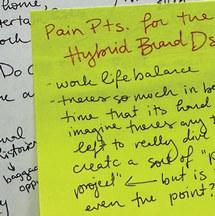 home,
Pain Pts. for the
Hybrid Brand Ds
- work life balance
- theres so much in be
time that its hard
imagine theres any t
left to really div
create a sort of "p
project" ← but is
even the point?
Do
bagg
opp